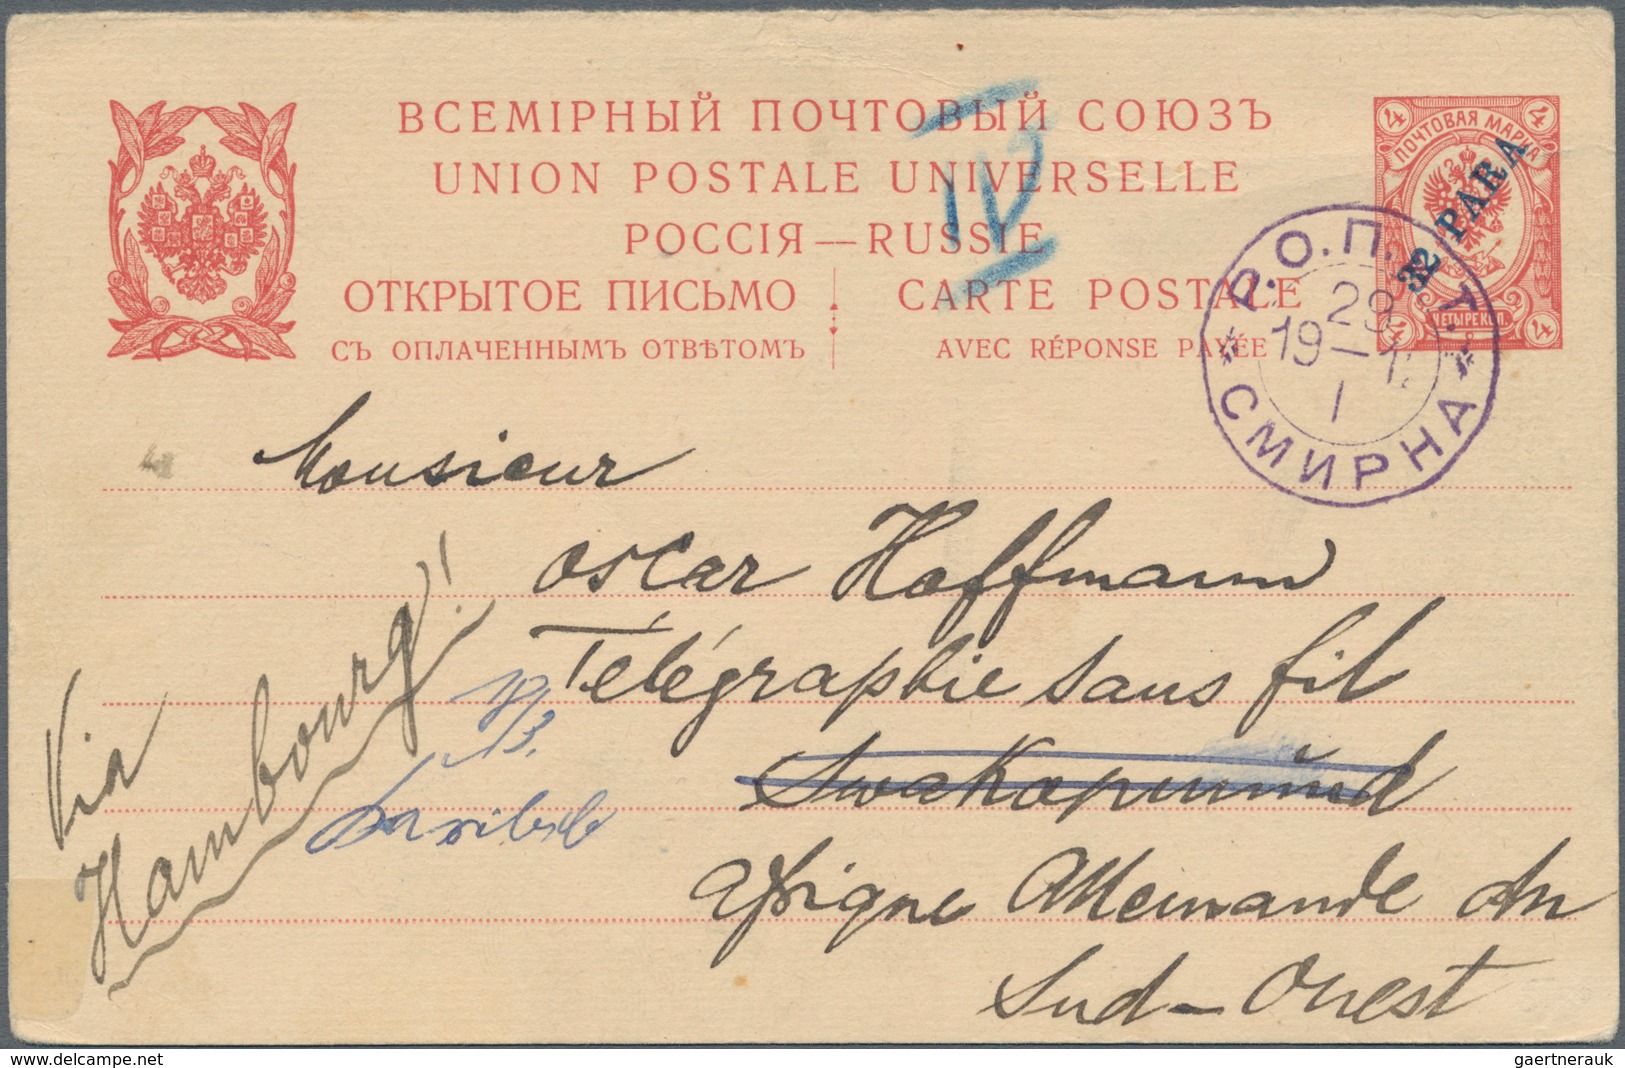 ВСЕМІРНЫЙ ПОЧТОВЫЙ СОЮЗЪ
UNION POSTALE UNIVERSELLE
РОССІЯ — RUSSIE
ОТКРЫТОЕ ПИСЬМО
СЪ ОПЛАЧЕННЫМЪ ОТВѢТОМЪ
CARTE POSTALE
AVEC RÉPONSE PAYÉE
IV
4 4
ПОЧТОВАЯ МАРКА
32 PARA
ЧЕТЫРЕ КОП.
4 4
Р.О.П.
29
19—1
1
СМИРНА
Monsieur
Oscar Hoffmann
Télégraphie sans fil
Swakopmund
Afrique Allemande du
Sud-Ouest
Via
Hambourg!
delcampe.net
gaertnerauk